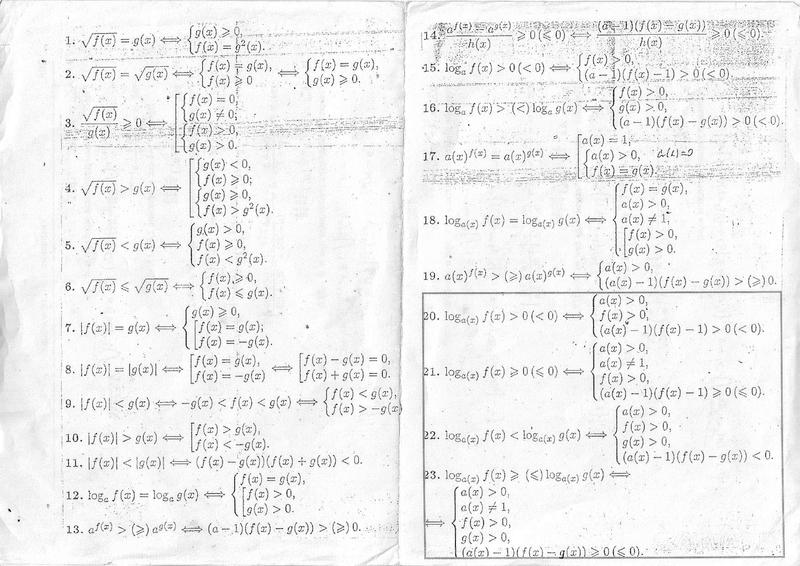 1. √f(x) = g(x) ⟺ { g(x) ⩾ 0, f(x) = g²(x).
2. √f(x) = √g(x) ⟺ { f(x) = g(x), f(x) ⩾ 0 ⟺ { f(x) = g(x), g(x) ⩾ 0.
3. √f(x) / g(x) ⩾ 0 ⟺ [ { f(x) = 0, g(x) ≠ 0; { f(x) > 0, g(x) > 0.
4. √f(x) > g(x) ⟺ [ { g(x) < 0, f(x) ⩾ 0; { g(x) ⩾ 0, f(x) > g²(x).
5. √f(x) < g(x) ⟺ { g(x) > 0, f(x) ⩾ 0, f(x) < g²(x).
6. √f(x) ⩽ √g(x) ⟺ { f(x) ⩾ 0, f(x) ⩽ g(x).
7. |f(x)| = g(x) ⟺ { g(x) ⩾ 0, [ f(x) = g(x); f(x) = −g(x).
8. |f(x)| = |g(x)| ⟺ [ f(x) = g(x), f(x) = −g(x) ⟺ [ f(x) − g(x) = 0, f(x) + g(x) = 0.
9. |f(x)| < g(x) ⟺ −g(x) < f(x) < g(x) ⟺ { f(x) < g(x), f(x) > −g(x)
10. |f(x)| > g(x) ⟺ [ f(x) > g(x), f(x) < −g(x).
11. |f(x)| < |g(x)| ⟺ (f(x) − g(x))(f(x) + g(x)) < 0.
12. logₐ f(x) = logₐ g(x) ⟺ { f(x) = g(x), [ f(x) > 0, g(x) > 0.
13. a^f(x) > (⩾) a^g(x) ⟺ (a − 1)(f(x) − g(x)) > (⩾) 0.
14. (a^f(x) − a^g(x)) / h(x) ⩾ 0 (⩽ 0) ⟺ (a − 1)(f(x) − g(x)) / h(x) ⩾ 0 (⩽ 0).
15. logₐ f(x) > 0 (< 0) ⟺ { f(x) > 0, (a − 1)(f(x) − 1) > 0 (< 0).
16. logₐ f(x) > (<) logₐ g(x) ⟺ { f(x) > 0, g(x) > 0, (a − 1)(f(x) − g(x)) > 0 (< 0).
17. a(x)^f(x) = a(x)^g(x) ⟺ [ a(x) = 1, { a(x) > 0, f(x) = g(x).
18. log_a(x) f(x) = log_a(x) g(x) ⟺ { f(x) = g(x), a(x) > 0, a(x) ≠ 1, [ f(x) > 0, g(x) > 0.
19. a(x)^f(x) > (⩾) a(x)^g(x) ⟺ { a(x) > 0, (a(x) − 1)(f(x) − g(x)) > (⩾) 0.
20. log_a(x) f(x) > 0 (< 0) ⟺ { a(x) > 0, f(x) > 0, (a(x) − 1)(f(x) − 1) > 0 (< 0).
21. log_a(x) f(x) ⩾ 0 (⩽ 0) ⟺ { a(x) > 0, a(x) ≠ 1, f(x) > 0, (a(x) − 1)(f(x) − 1) ⩾ 0 (⩽ 0).
22. log_a(x) f(x) < log_a(x) g(x) ⟺ { a(x) > 0, f(x) > 0, g(x) > 0, (a(x) − 1)(f(x) − g(x)) < 0.
23. log_a(x) f(x) ⩾ (⩽) log_a(x) g(x) ⟺
⟺ { a(x) > 0, a(x) ≠ 1, f(x) > 0, g(x) > 0, (a(x) − 1)(f(x) − g(x)) ⩾ 0 (⩽ 0).